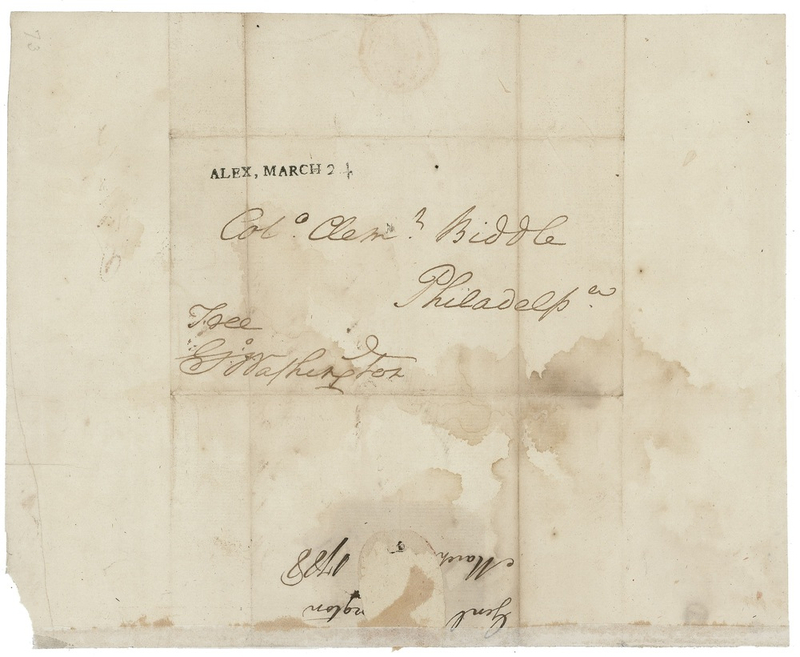 ALEX, MARCH 24
Colo. Clemt. Biddle
Philadelpa.
Free
Go: Washington
Genl ngton
March 1788
73